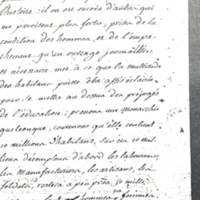 l'histoire : il en est encore d'autres qui
me paroissent plus fortes, prises de la
condition des hommes, et de l'empe-
chement qu'un ouvrage journalier
et nécessaire met à ce que la multitude
des habitans puisse être assez éclairée
pour se mettre au dessus des préjugés
de l'éducation ; prenons une monarchie
quelconque, convenons qu'elle contient
10 millions d'habitans, sur ces 10 mil-
lions décomptons d'abord les laboureurs,
les manufacturiers, les artisans, les
soldats, restera à peu près 50 mille
hommes